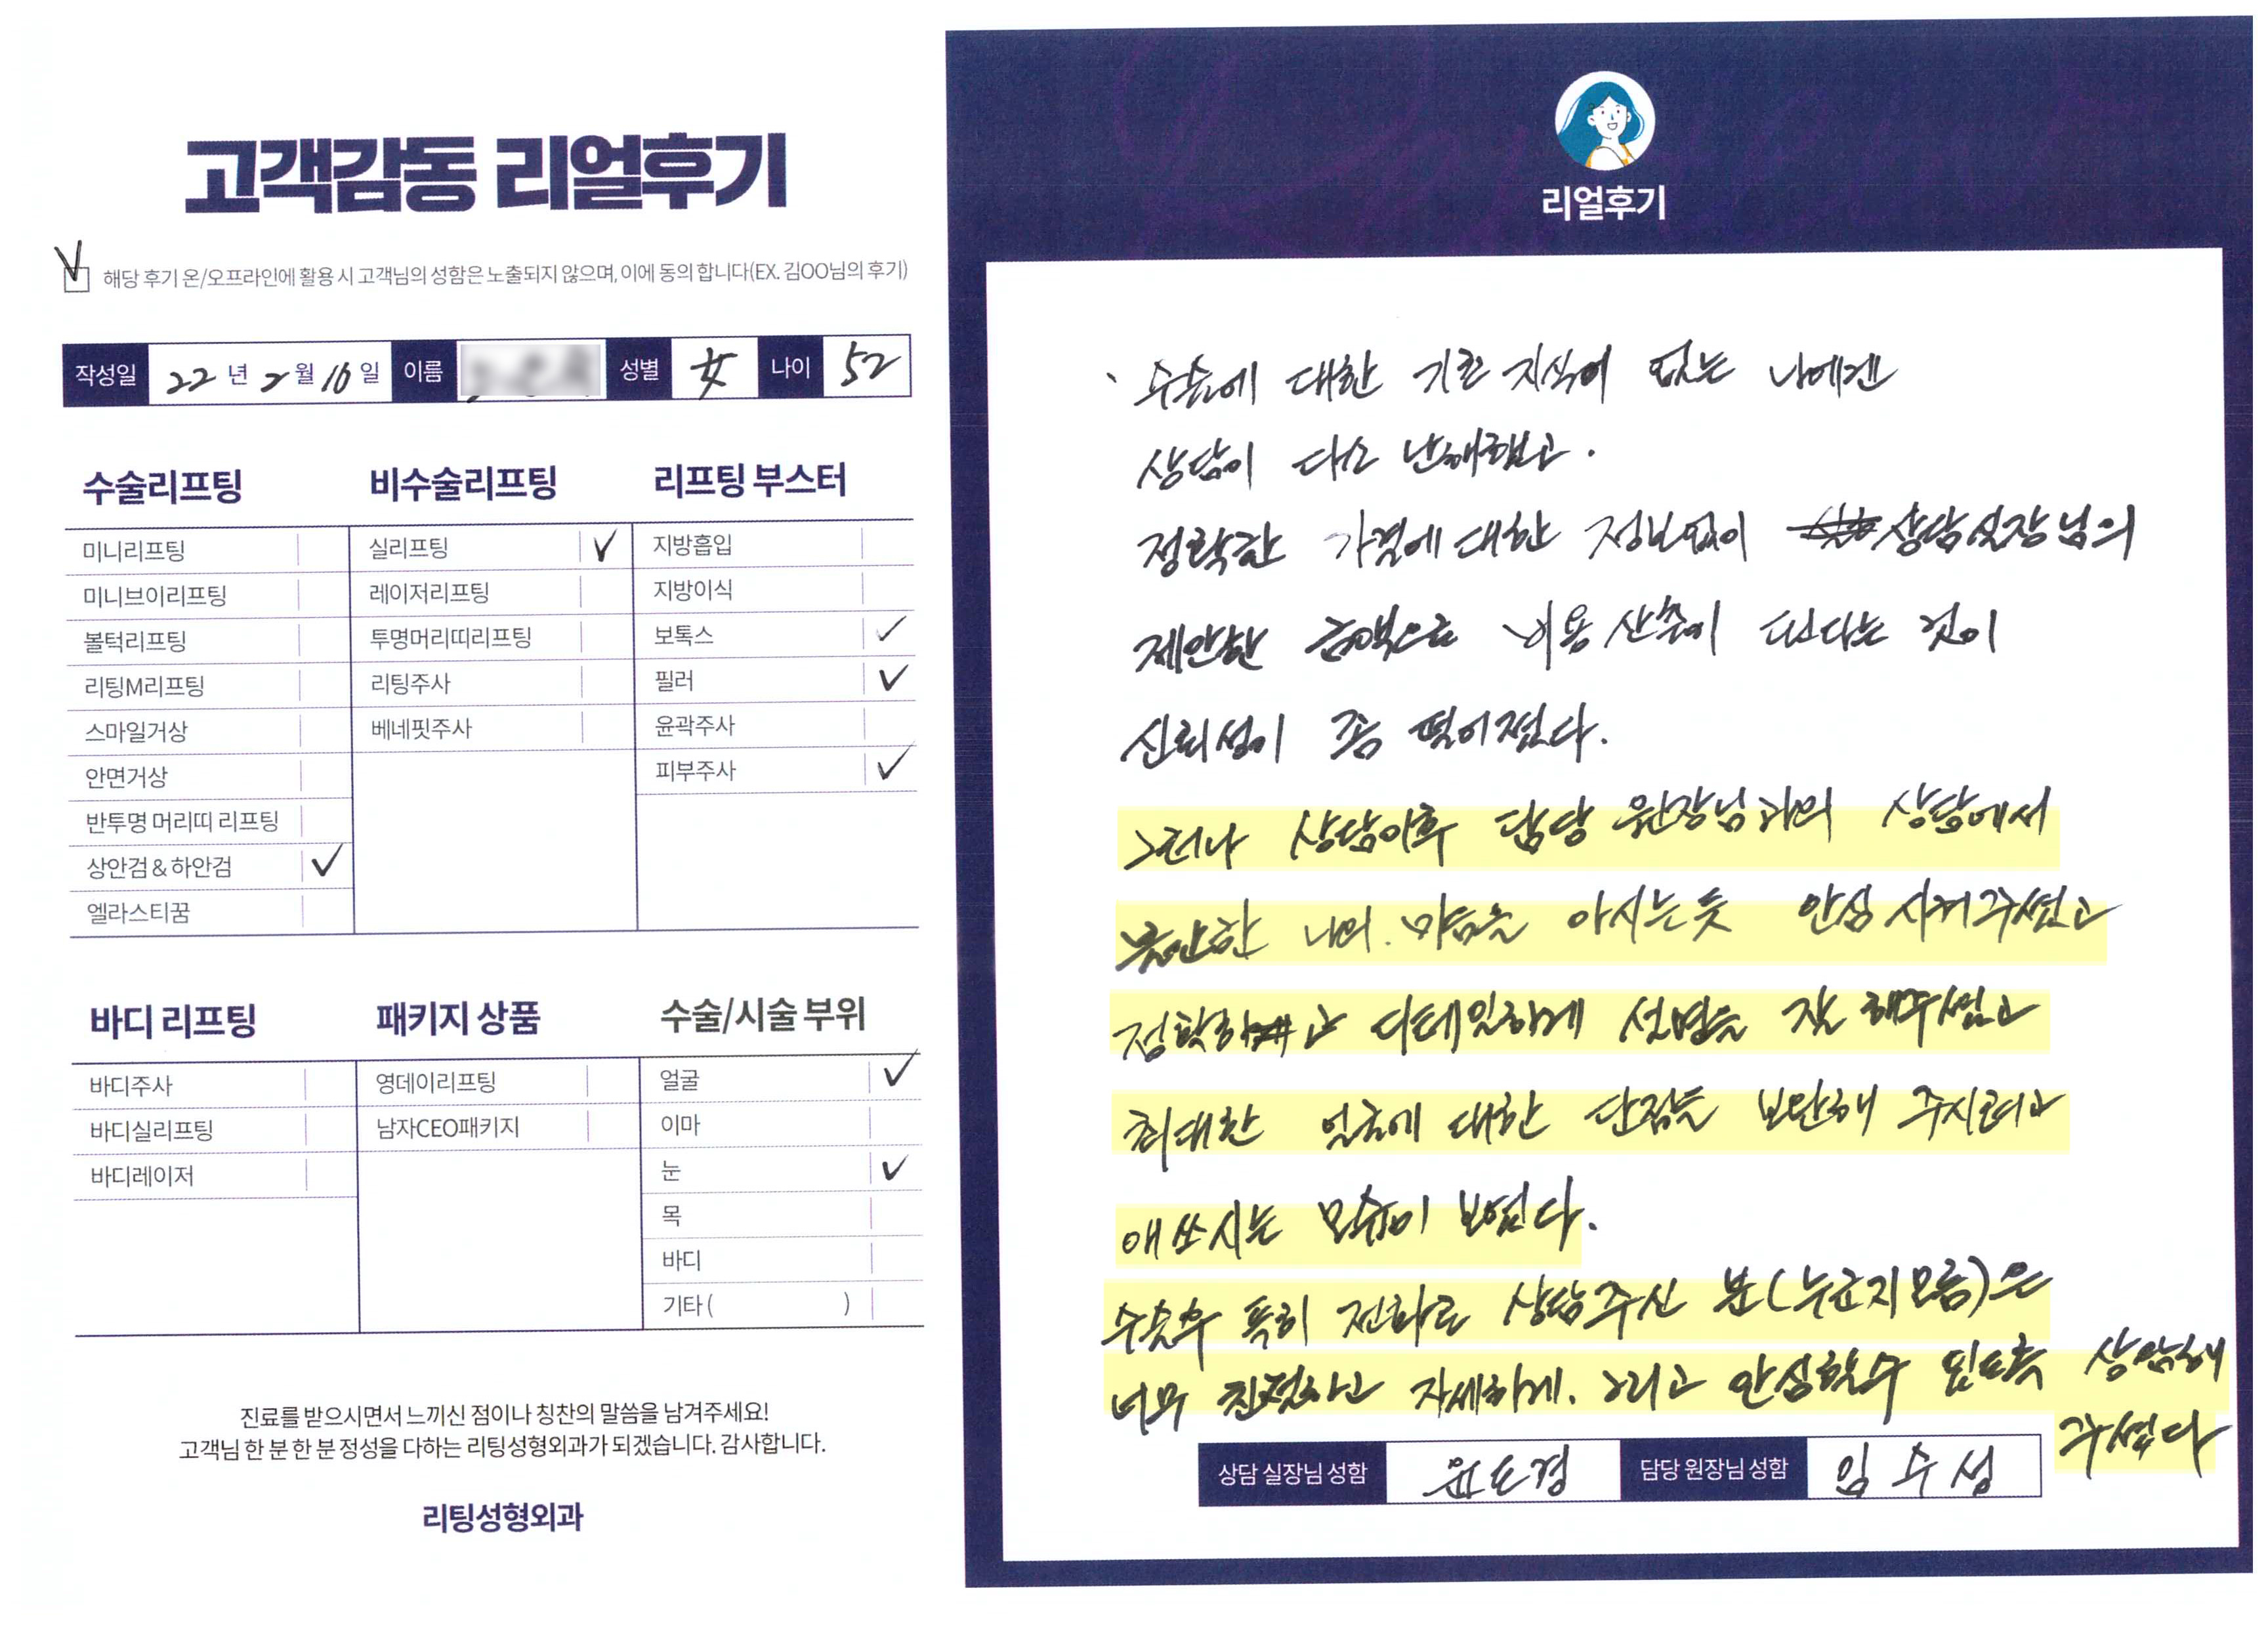 고객감동 리얼후기
해당 후기 온/오프라인에 활용 시 고객님의 성함은 노출되지 않으며, 이에 동의 합니다(EX. 김OO님의 후기)
작성일 22 년 2 월 16 일 이름 성별 女 나이 52
수술리프팅
미니리프팅
미니브이리프팅
볼턱리프팅
리팅M리프팅
스마일거상
안면거상
반투명 머리띠 리프팅
상안검 & 하안검 ✓
엘라스티꿈
비수술리프팅
실리프팅 ✓
레이저리프팅
투명머리띠리프팅
리팅주사
베네핏주사
리프팅 부스터
지방흡입
지방이식
보톡스 ✓
필러 ✓
윤곽주사
피부주사 ✓
바디 리프팅
바디주사
바디실리프팅
바디레이저
패키지 상품
영데이리프팅
남자CEO패키지
수술/시술 부위
얼굴 ✓
이마
눈 ✓
목
바디
기타 ( )
진료를 받으시면서 느끼신 점이나 칭찬의 말씀을 남겨주세요!
고객님 한 분 한 분 정성을 다하는 리팅성형외과가 되겠습니다. 감사합니다.
리팅성형외과
리얼후기
수술에 대한 기본 지식이 없는 나에겐
상담이 다소 난해했고.
정확한 가격에 대한 정보없이 상담실장님의
제안한 금액으로 비용 산출이 된다는 것이
신뢰성이 좀 떨어졌다.
그러나 상담이후 담당 원장님과의 상담에서
불안한 나의 마음을 아시는듯 안심 시켜주셨고
정확하고 디테일하게 설명을 잘 해주셨고
최대한 얼굴에 대한 단점들 보완해 주시려고
애쓰시는 모습이 보였다.
수술후 특히 전화로 상담주신 분(누군지모름)은
너무 친절하고 자세하게. 그리고 안심할수 있도록 상담해
주셨다
상담 실장님 성함 윤도경 담당 원장님 성함 임수성